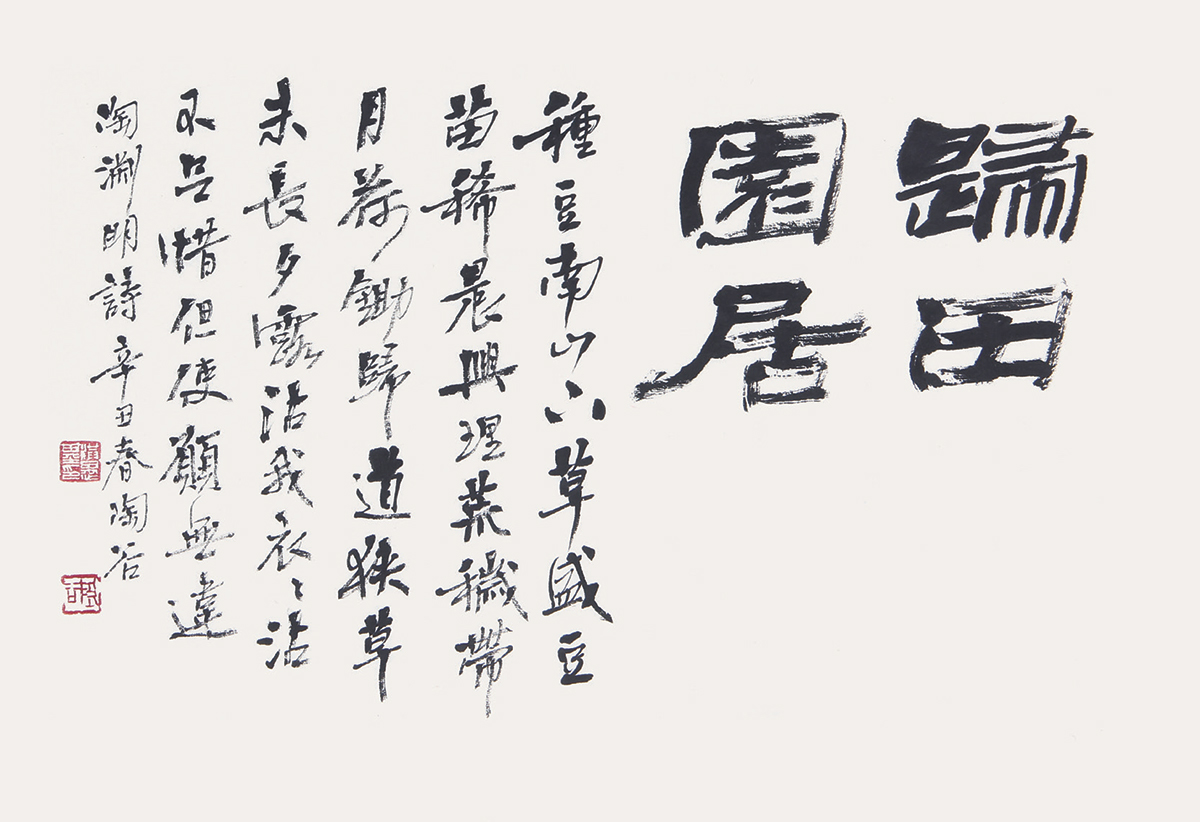 歸田
園居
種豆南山下草盛豆
苗稀晨興理荒穢帶
月荷鋤歸道狹草
未長夕露沾我衣〻沾
不足惜但使願無違
陶淵明詩辛丑春陶谷